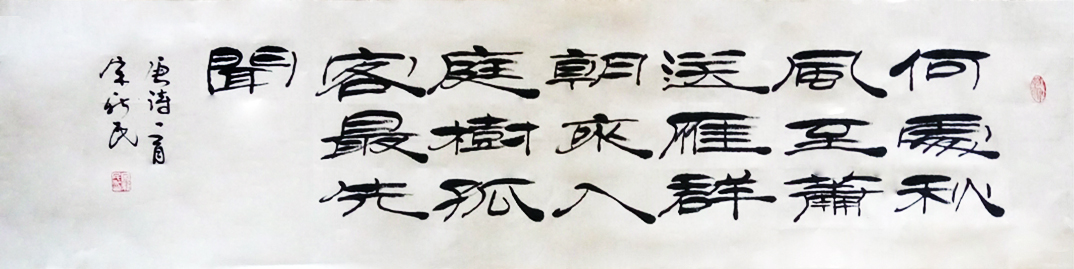 何處秋
風至蕭
送雁群
朝來入
庭樹孤
客最先
聞
唐詩一首
宋新民